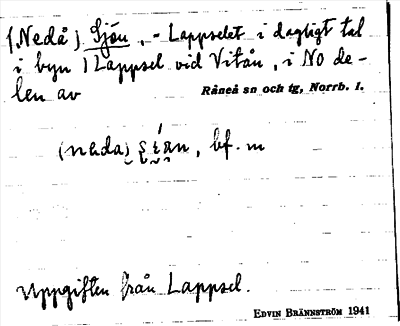 (Nedå) Sjön, - Lappselet i dagligt tal
i byn Lappsel vid Vitån, i NO de-
len av
Råneå sn och tg, Norrb. l.
bf. m
Uppgiften från Lappsel.
EDVIN BRÄNNSTRÖM 1941